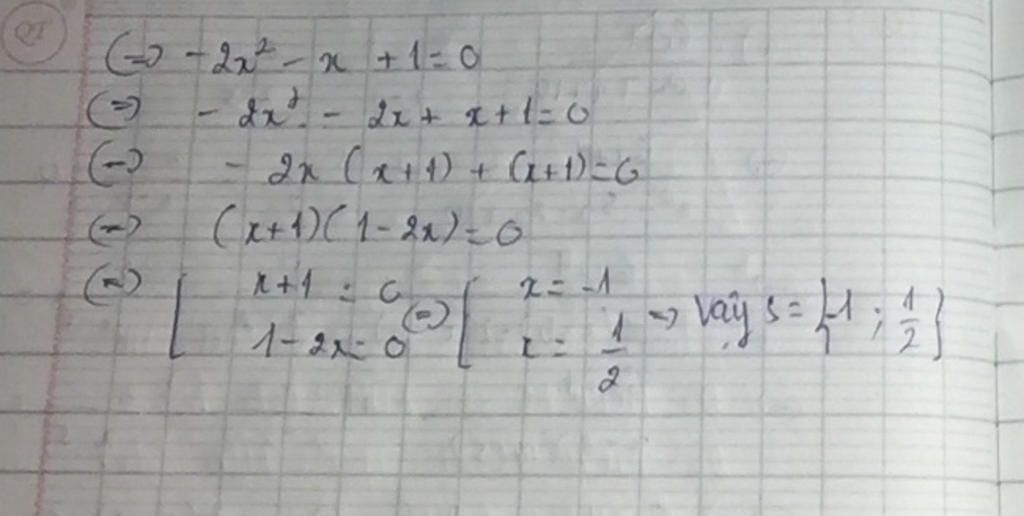 (=) -2x² - x + 1 = 0
(=) - 2x² - 2x + x + 1 = 0
(=) - 2x (x+1) + (x+1) = 0
(=) (x+1)(1-2x) = 0
(=) [ x+1 = 0 (=) [ x = -1
1-2x = 0 x = 1/2 => Vậy S = {-1 ; 1/2}